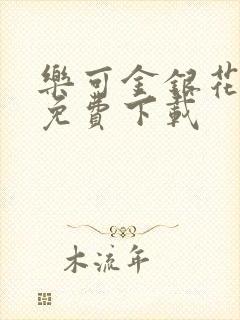 樂可金銀花
免費下載
木流年